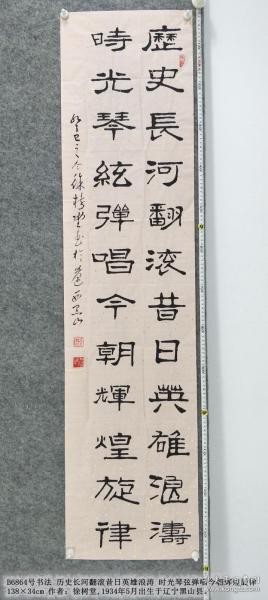 歷史長河翻滚昔日英雄浪濤
時光琴絃彈唱今朝輝煌旋律
癸巳之冬徐樹堂書於遼西黑山
B6864号书法 历史长河翻滚昔日英雄浪涛 时光琴弦弹唱今朝辉煌旋律
138×34cm 作者：徐树堂,1934年5月出生于辽宁黑山县。